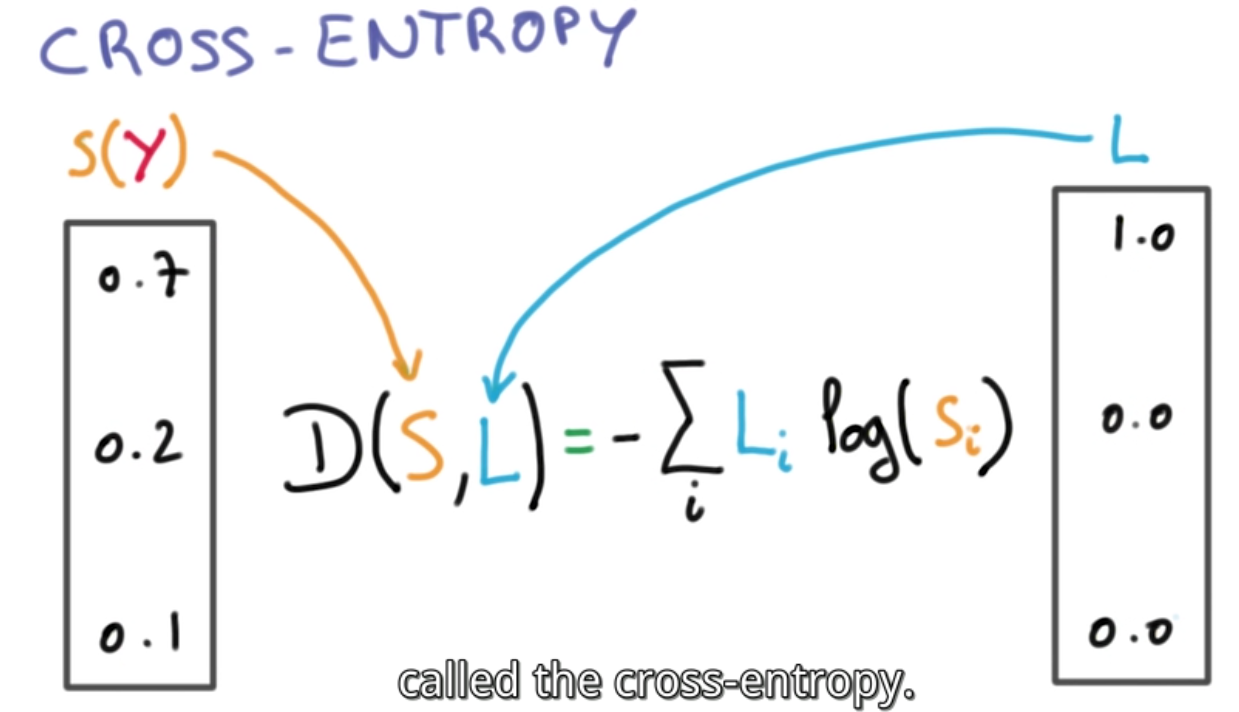 CROSS-ENTROPY
S(Y)
L
0.7
1.0
0.2
D(S,L) = - ∑ᵢ Lᵢ log(Sᵢ)
0.0
0.1
0.0
called the cross-entropy.